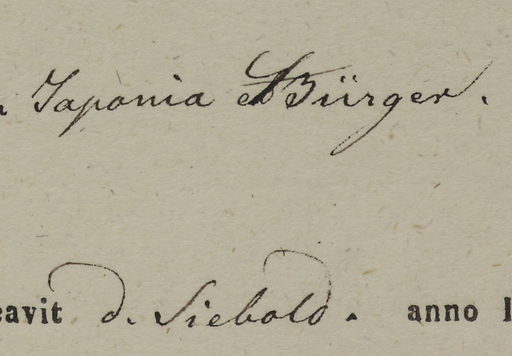 Japonia et Bürger.
eavit d. Siebold. anno